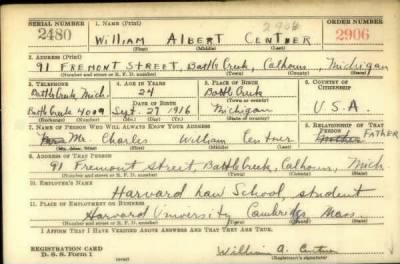 SERIAL NUMBER 1. NAME (Print) ORDER NUMBER
2480 William Albert Centner 2908 2906
(First) (Middle) (Last)
2. ADDRESS (Print)
91 Fremont Street, Battle Creek, Calhoun, Michigan
(Number and street or R. F. D. number) (Town) (County) (State)
3. TELEPHONE 4. AGE IN YEARS 5. PLACE OF BIRTH 6. COUNTRY OF CITIZENSHIP
Battle Creek Mich. 24 Battle Creek
DATE OF BIRTH (Town or county)
Battle Creek 4009 Sept. 27 1916 Michigan U.S.A.
(Exchange) (Number) (Mo.) (Day) (Yr.) (State or country)
7. NAME OF PERSON WHO WILL ALWAYS KNOW YOUR ADDRESS 8. RELATIONSHIP OF THAT PERSON
Mr. Charles William Centner Mother FATHER
(Mr., Mrs., Miss) (First) (Middle) (Last)
9. ADDRESS OF THAT PERSON
91 Fremont Street, Battle Creek, Calhoun, Mich
(Number and street or R. F. D. number) (Town) (County) (State)
10. EMPLOYER'S NAME
Harvard Law School, student
11. PLACE OF EMPLOYMENT OR BUSINESS
Harvard University Cambridge Mass.
(Number and street or R. F. D. number) (Town) (County) (State)
I AFFIRM THAT I HAVE VERIFIED ABOVE ANSWERS AND THAT THEY ARE TRUE.
REGISTRATION CARD
D. S. S. Form 1 William A. Centner
(over) (Registrant's signature)